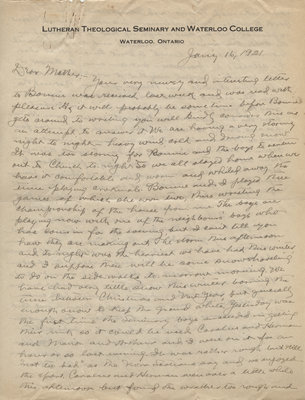 LUTHERAN THEOLOGICAL SEMINARY AND WATERLOO COLLEGE
WATERLOO, ONTARIO
Jan'y 16, 1921
Dear Mother:- Your very newsy and interesting letter
to Bonnie was received last week and was read with
pleasure. As it will probably be some time before Bonnie
gets around to writing you will kindly consider this as
an attempt to answer it. We are having a very stormy
night to-night - heavy wind, cold and snow
It was too stormy for Bonnie and the boys to venture
out to church to-night so we all stayed home where we
have it comfortable and warm and whiled away the
time playing Bonnie and I played three
games of which she won two thus winning the
championship of the house for now. The boys are
playing now with one of the neighbours boys who
has come in for the evening but I can't tell you
how they are making out. The storm this afternoon
and to-night was the heaviest we have had this winter
and I suppose there will be some snow shoveling
to do on the side walks to-morrow morning. We
have had very little snow this winter barring the
time between Christmas and New Years but generally
enough snow to keep the ground white. Yesterday was
the first time the seminary boys succeeded in getting
their rink so it could be used. Carolus and Herman
and Marion and Arthur and I were on it for an
hour or so last evening. It was rather rough but still
not too bad as the Nova Scotians say and we enjoyed
the sport. Carolus and Herman were over a little while
this afternoon but found the weather too rough and